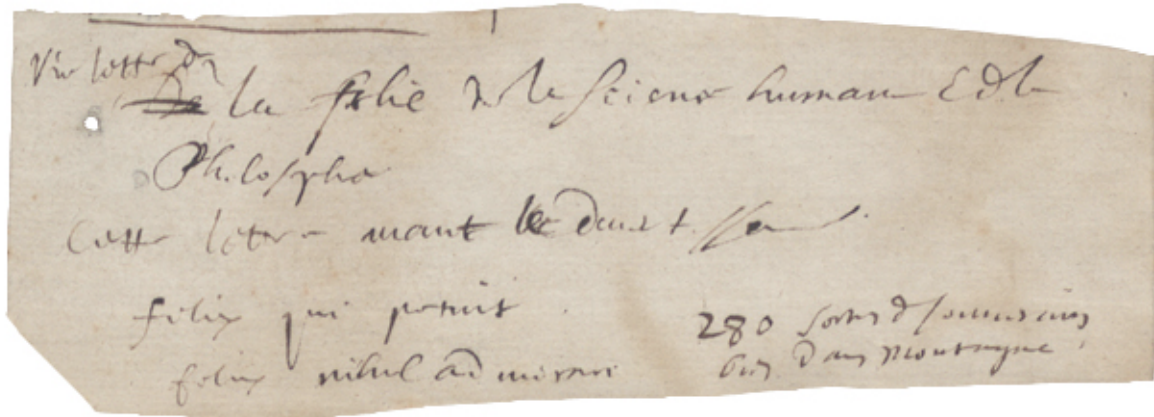 Vne lettre de
De la folie de la science humaine Et de la
Philosophie
Cette lettre auant le diuertissem
felix qui potuit .
felix nihil admirari
280 sortes de souuerains
biens dans Montaigne